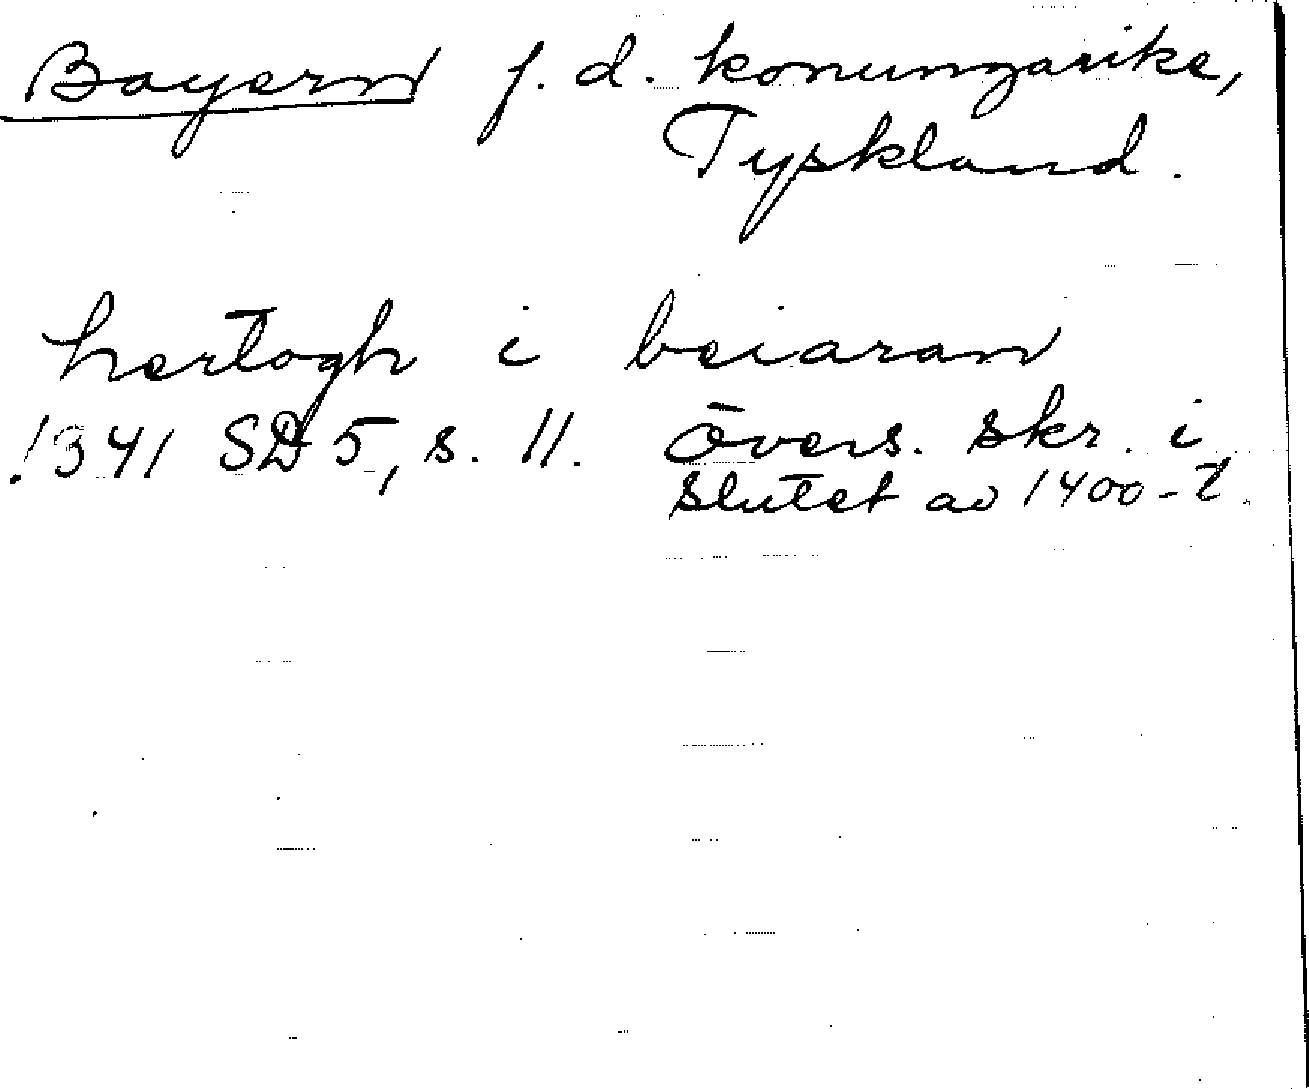 Bayern f. d. konungarike,
Tyskland.
hertogh i beiaran
1341 SD 5, s. 11. Övers. skr. i
slutet av 1400-t.